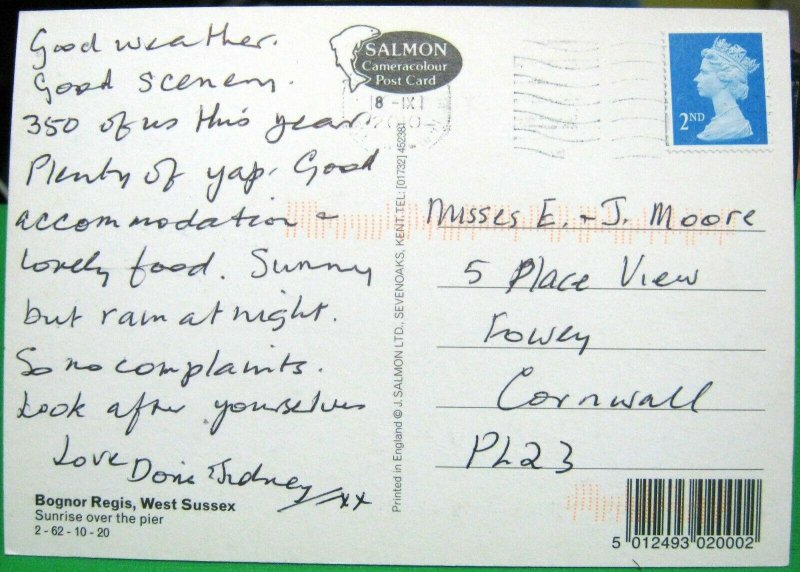 Good weather.
Good Scenery.
350 of us this year.
Plenty of yap. Good
accommodation &
lovely food. Sunny
but rain at night.
So no complaints.
Look after yourselves
Love Doris & Sidney xx
Bognor Regis, West Sussex
Sunrise over the pier
2 - 62 - 10 - 20
SALMON
Cameracolour
Post Card
8 -IX
Printed in England © J. SALMON LTD., SEVENOAKS, KENT. TEL: [01732] 452381
2ND
Misses E. & J. Moore
5 Place View
Fowey
Cornwall
PL23
5 012493 020002